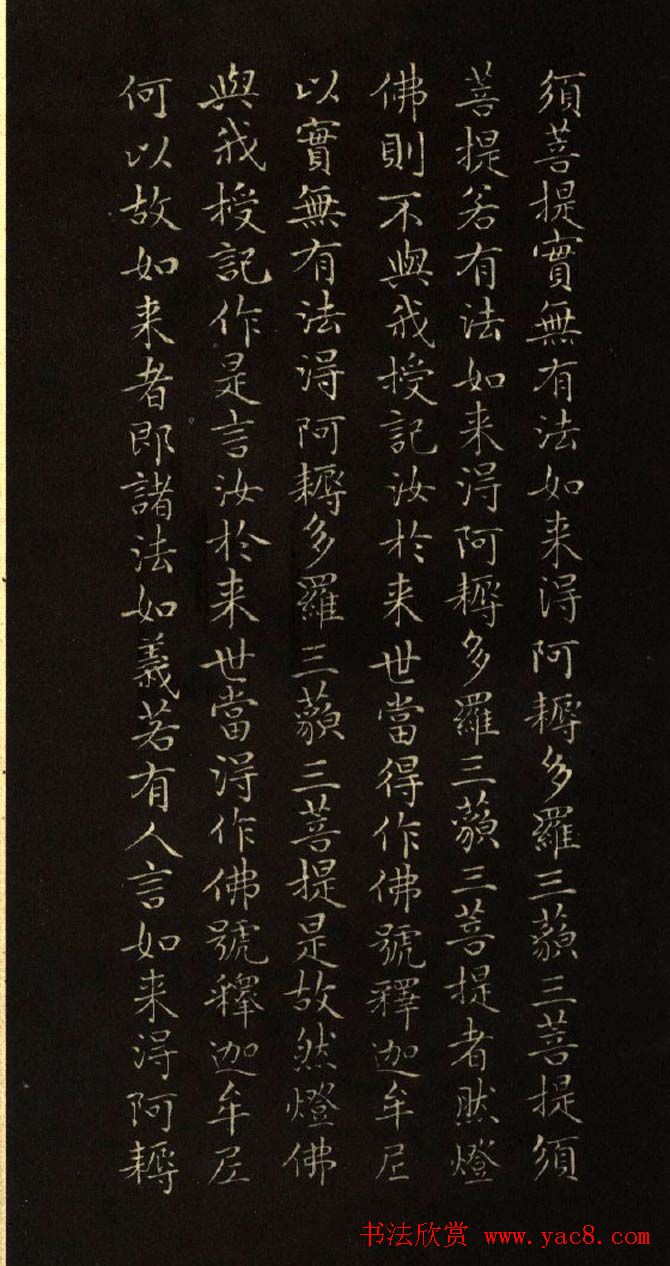 須菩提實無有法如来淂阿耨多羅三藐三菩提須
菩提若有法如来淂阿耨多羅三藐三菩提者然燈
佛則不與我授記汝於来世當得作佛號釋迦牟尼
以實無有法淂阿耨多羅三藐三菩提是故然燈佛
與我授記作是言汝於来世當淂作佛號釋迦牟尼
何以故如来者即諸法如義若有人言如来淂阿耨
书法欣赏 www.yac8.com